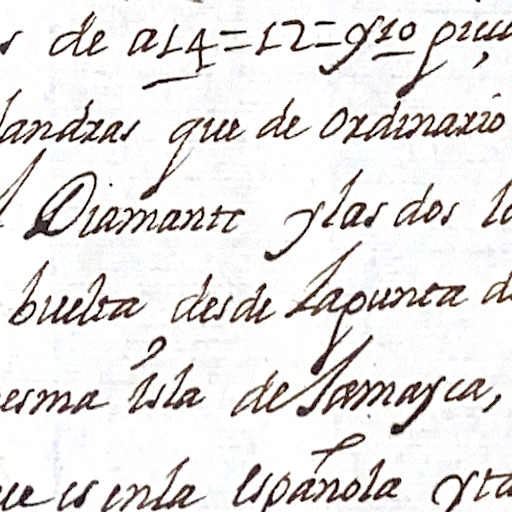 s de a 14 = 12 = y 10 pieças
landras que de ordinario
l Diamante y las dos lo
buelta desde la punta de
esma isla de Jamayca,
ue es en la española y ta